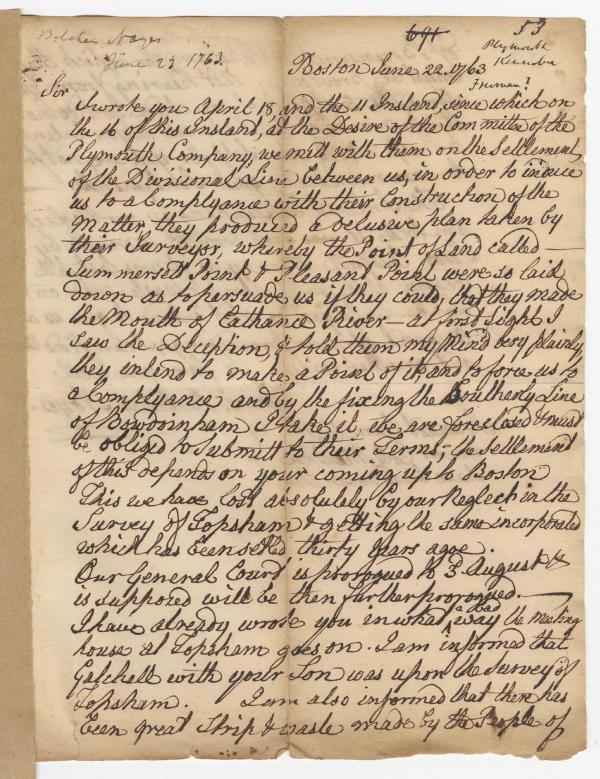 Belcher Noyes
June 23 1763.
691
53
Plymouth
Kennebec
Boston June 22. 1763
Sir
I wrote you April 18, and the 11 Instand, since which on
the 16 of this Instand, at the Desire of the Committe of the
Plymouth Company, we mett with them on the Settlement
of the Divisional Line between us, in order to induce
us to a Complyance with their Construction of the
Matter, they produced a delusive plan taken by
their Surveyor, whereby the Point of Land called —
Summersett Point & Pleasant Point were so laid
down as to persuade us if they could, that they made
the Mouth of Cathance River — at first Sight I
saw the Deception, & told them my Mind very plainly,
they intend to make a Point of it, and to force us to
a Complyance and by the fixing the Southerly Line
of Bowdoinham I take it, we are foreclosed & must
be obliged to Submitt to their Terms; the Settlement
of this depends on your coming up to Boston
This we have lost absolutely by our Neglect in the
Survey of Topsham & getting the same incorporated
which has been settled thirty years agoe.
Our General Court is prorogued to 3 August &
is supposed will be then further prorogued. —
I have already wrote you in what a bad way the meeting
house at Topsham goes on. I am informed that
Gatchell with your Son was upon the Survey of
Topsham. I am also informed that there has
been great Strip & waste made by the People of